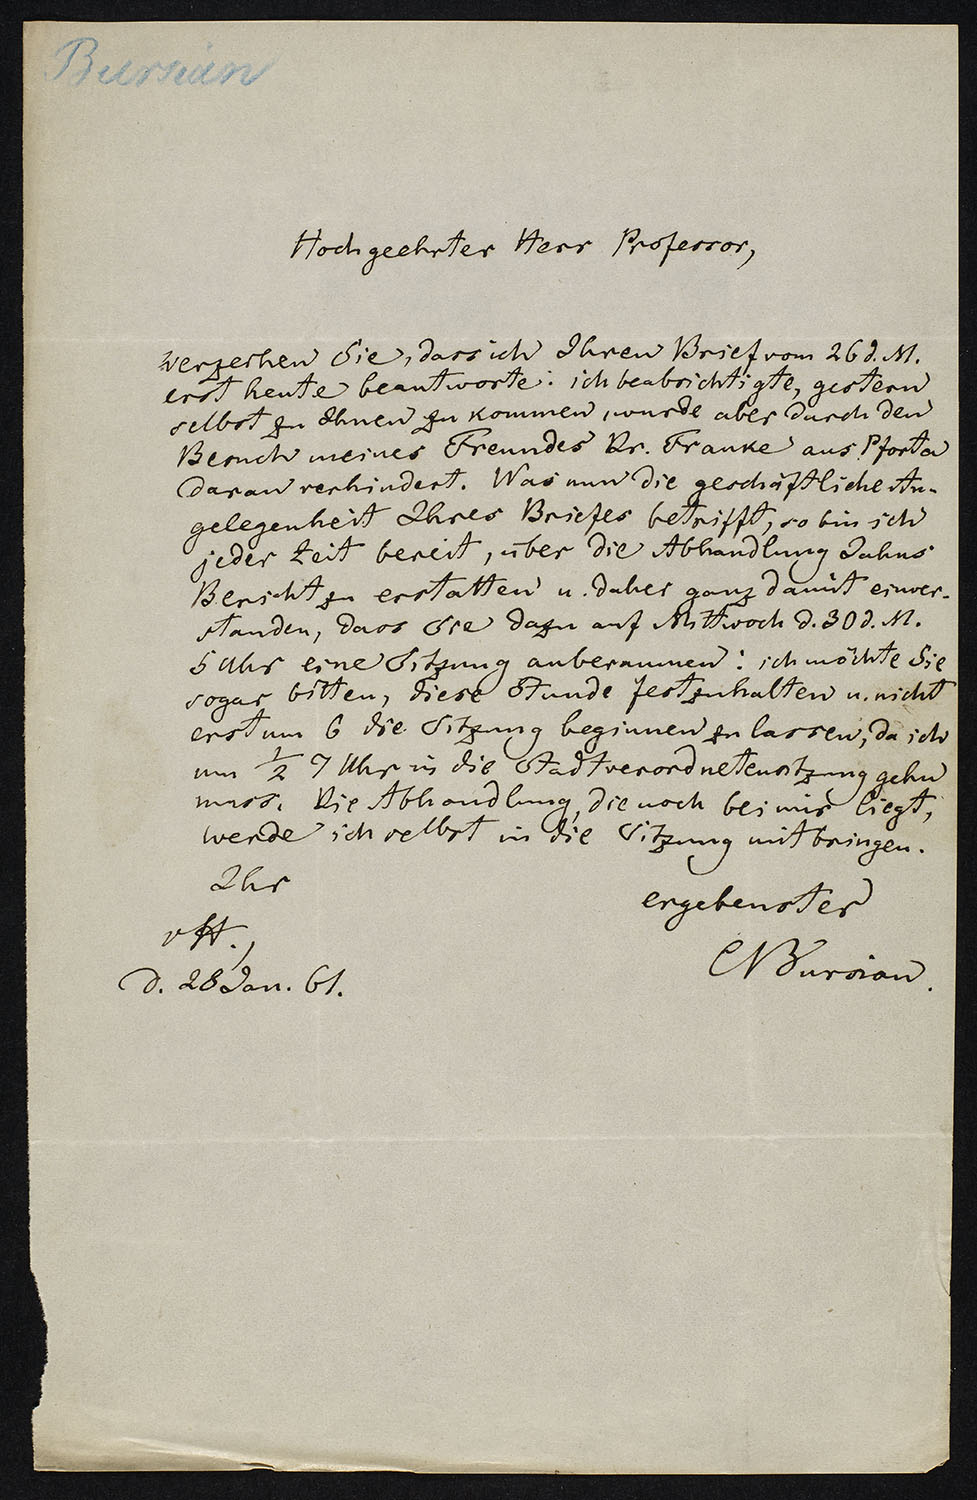 Bursian
Hochgeehrter Herr Professor,
verzeihen Sie, dass ich Ihren Brief vom 26 d. M.
erst heute beantworte: ich beabsichtigte, gestern
selbst zu Ihnen zu kommen, wurde aber durch den
Besuch meines Freundes Dr. Franke aus Pforta
daran verhindert. Was nun die geschäftliche An-
gelegenheit Ihres Briefes betrifft, so bin ich
jeder Zeit bereit, über die Abhandlung Jahns
Bericht zu erstatten u. daher ganz damit einver-
standen, dass Sie dazu auf Mittwoch d. 30 d. M.
5 Uhr eine Sitzung anberaumen: ich möchte Sie
sogar bitten, diese Stunde festzuhalten u. nicht
erst um 6 die Sitzung beginnen zu lassen, da ich
um ½ 7 Uhr in die Stadtverordnetensitzung gehn
muss. Die Abhandlung, die noch bei mir liegt,
werde ich selbst in die Sitzung mitbringen.
Ihr
ergebenster
CBursian.
d. 28 Jan. 61.